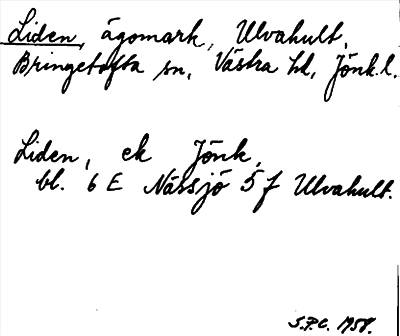 Liden, ägomark, Ulvahult,
Bringetofta sn, Västra hd, Jönk.l.
Liden, ek Jönk,
bl. 6 E Nässjö 5 f Ulvahult.
S.P.C. 1958.